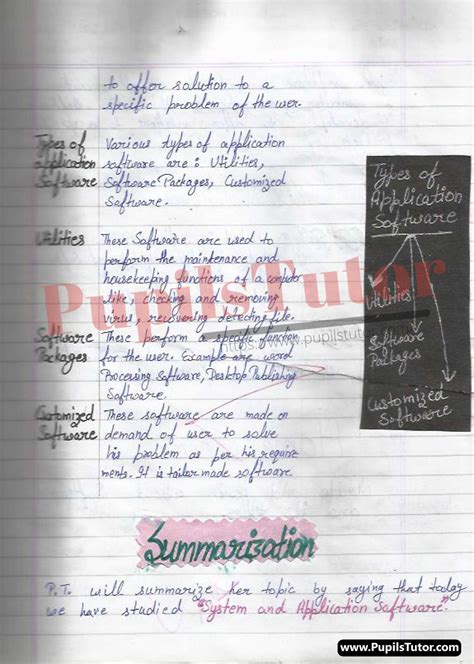 to offer solution to a
specific problem of the user.
Types of
application
Software
Various types of application
software are : Utilities,
Software Packages, Customized
Software.
Utilities
These Software are used to
perform the maintenance and
housekeeping functions of a computer
like, checking and removing
virus, recovering defecting file.
Software
Packages
These perform a specific function
for the user. Example are word
Processing Software, Desktop Publishing
Software.
Customized
Software
These software are made on
demand of user to solve
his problem as per his require
ments. It is tailor made software
Types of
Application
Software
Utilities
Software
Packages
Customized
Software
PupilsTutor
https://www.pupilstutor
Summarization
P.T. will summarize her topic by saying that today
we have studied "System and Application Software".
www.PupilsTutor.com